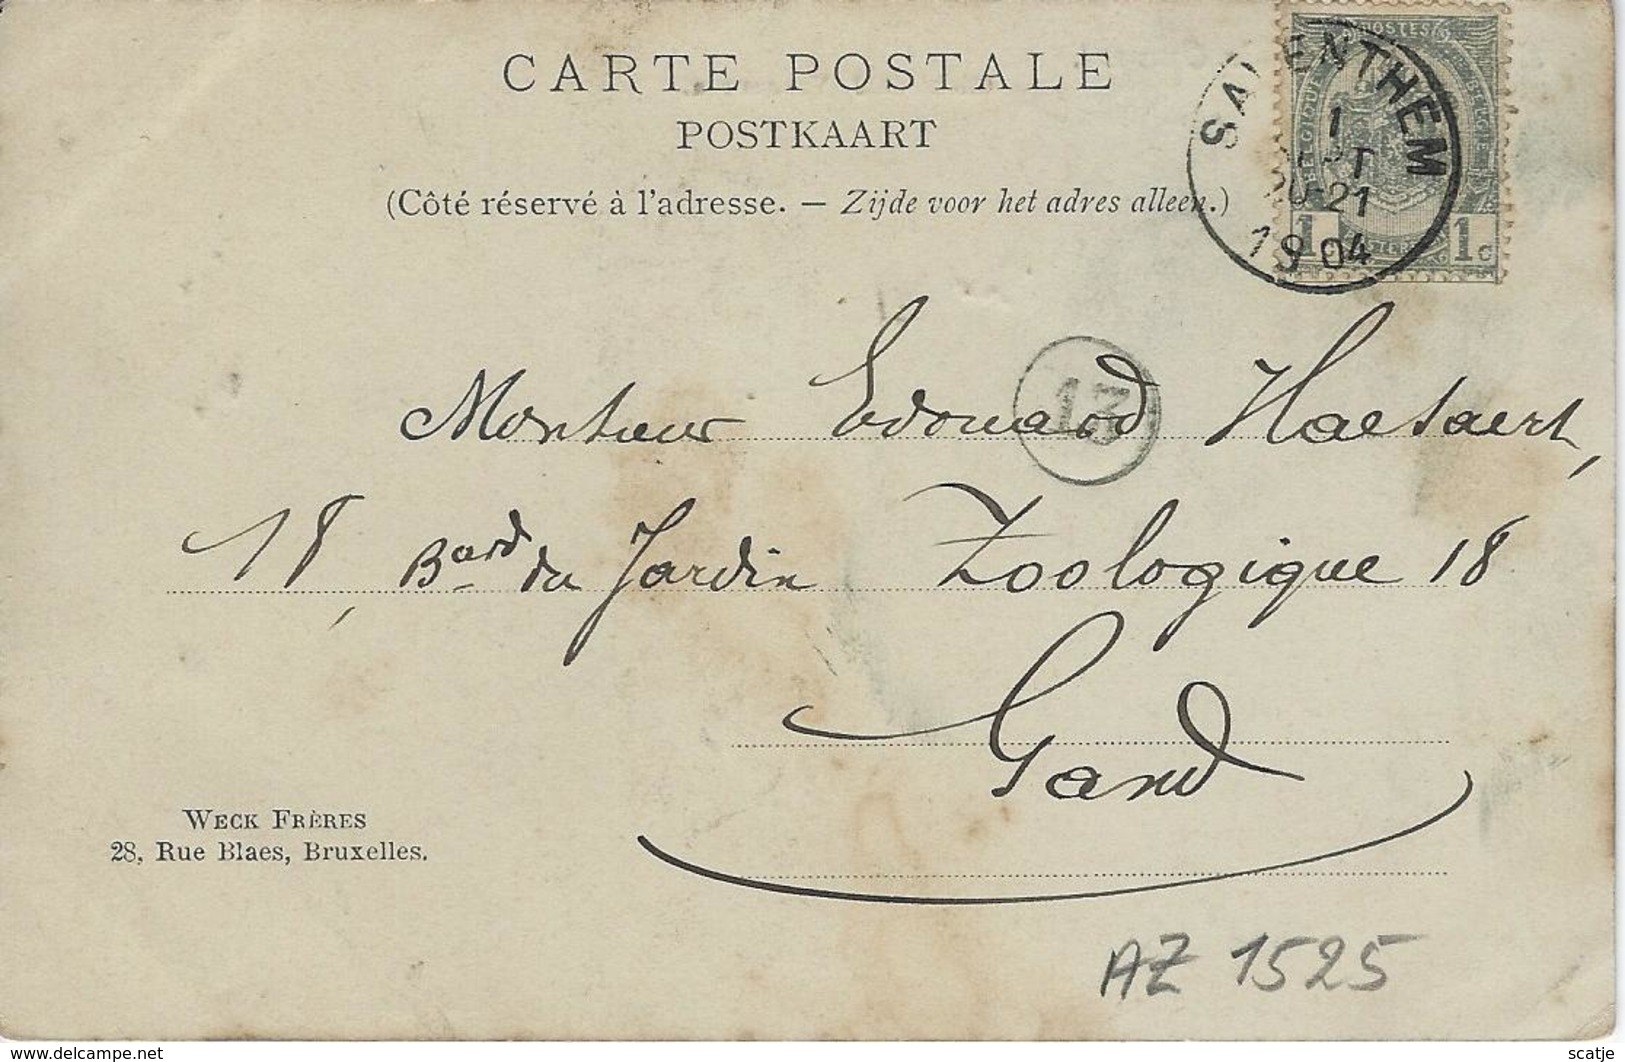 CARTE POSTALE
POSTKAART
(Côté réservé à l'adresse. — Zijde voor het adres alleen.)
POSTES
BELGIQUE
1 1c
SAVENTHEM
1
20-21
1904
13
Monsieur Edouard Haesaert,
18, Bard du Jardin Zoologique 18
Gand
WECK FRÈRES
28, Rue Blaes, Bruxelles.
AZ 1525
https://www.delcampe.net
scatje